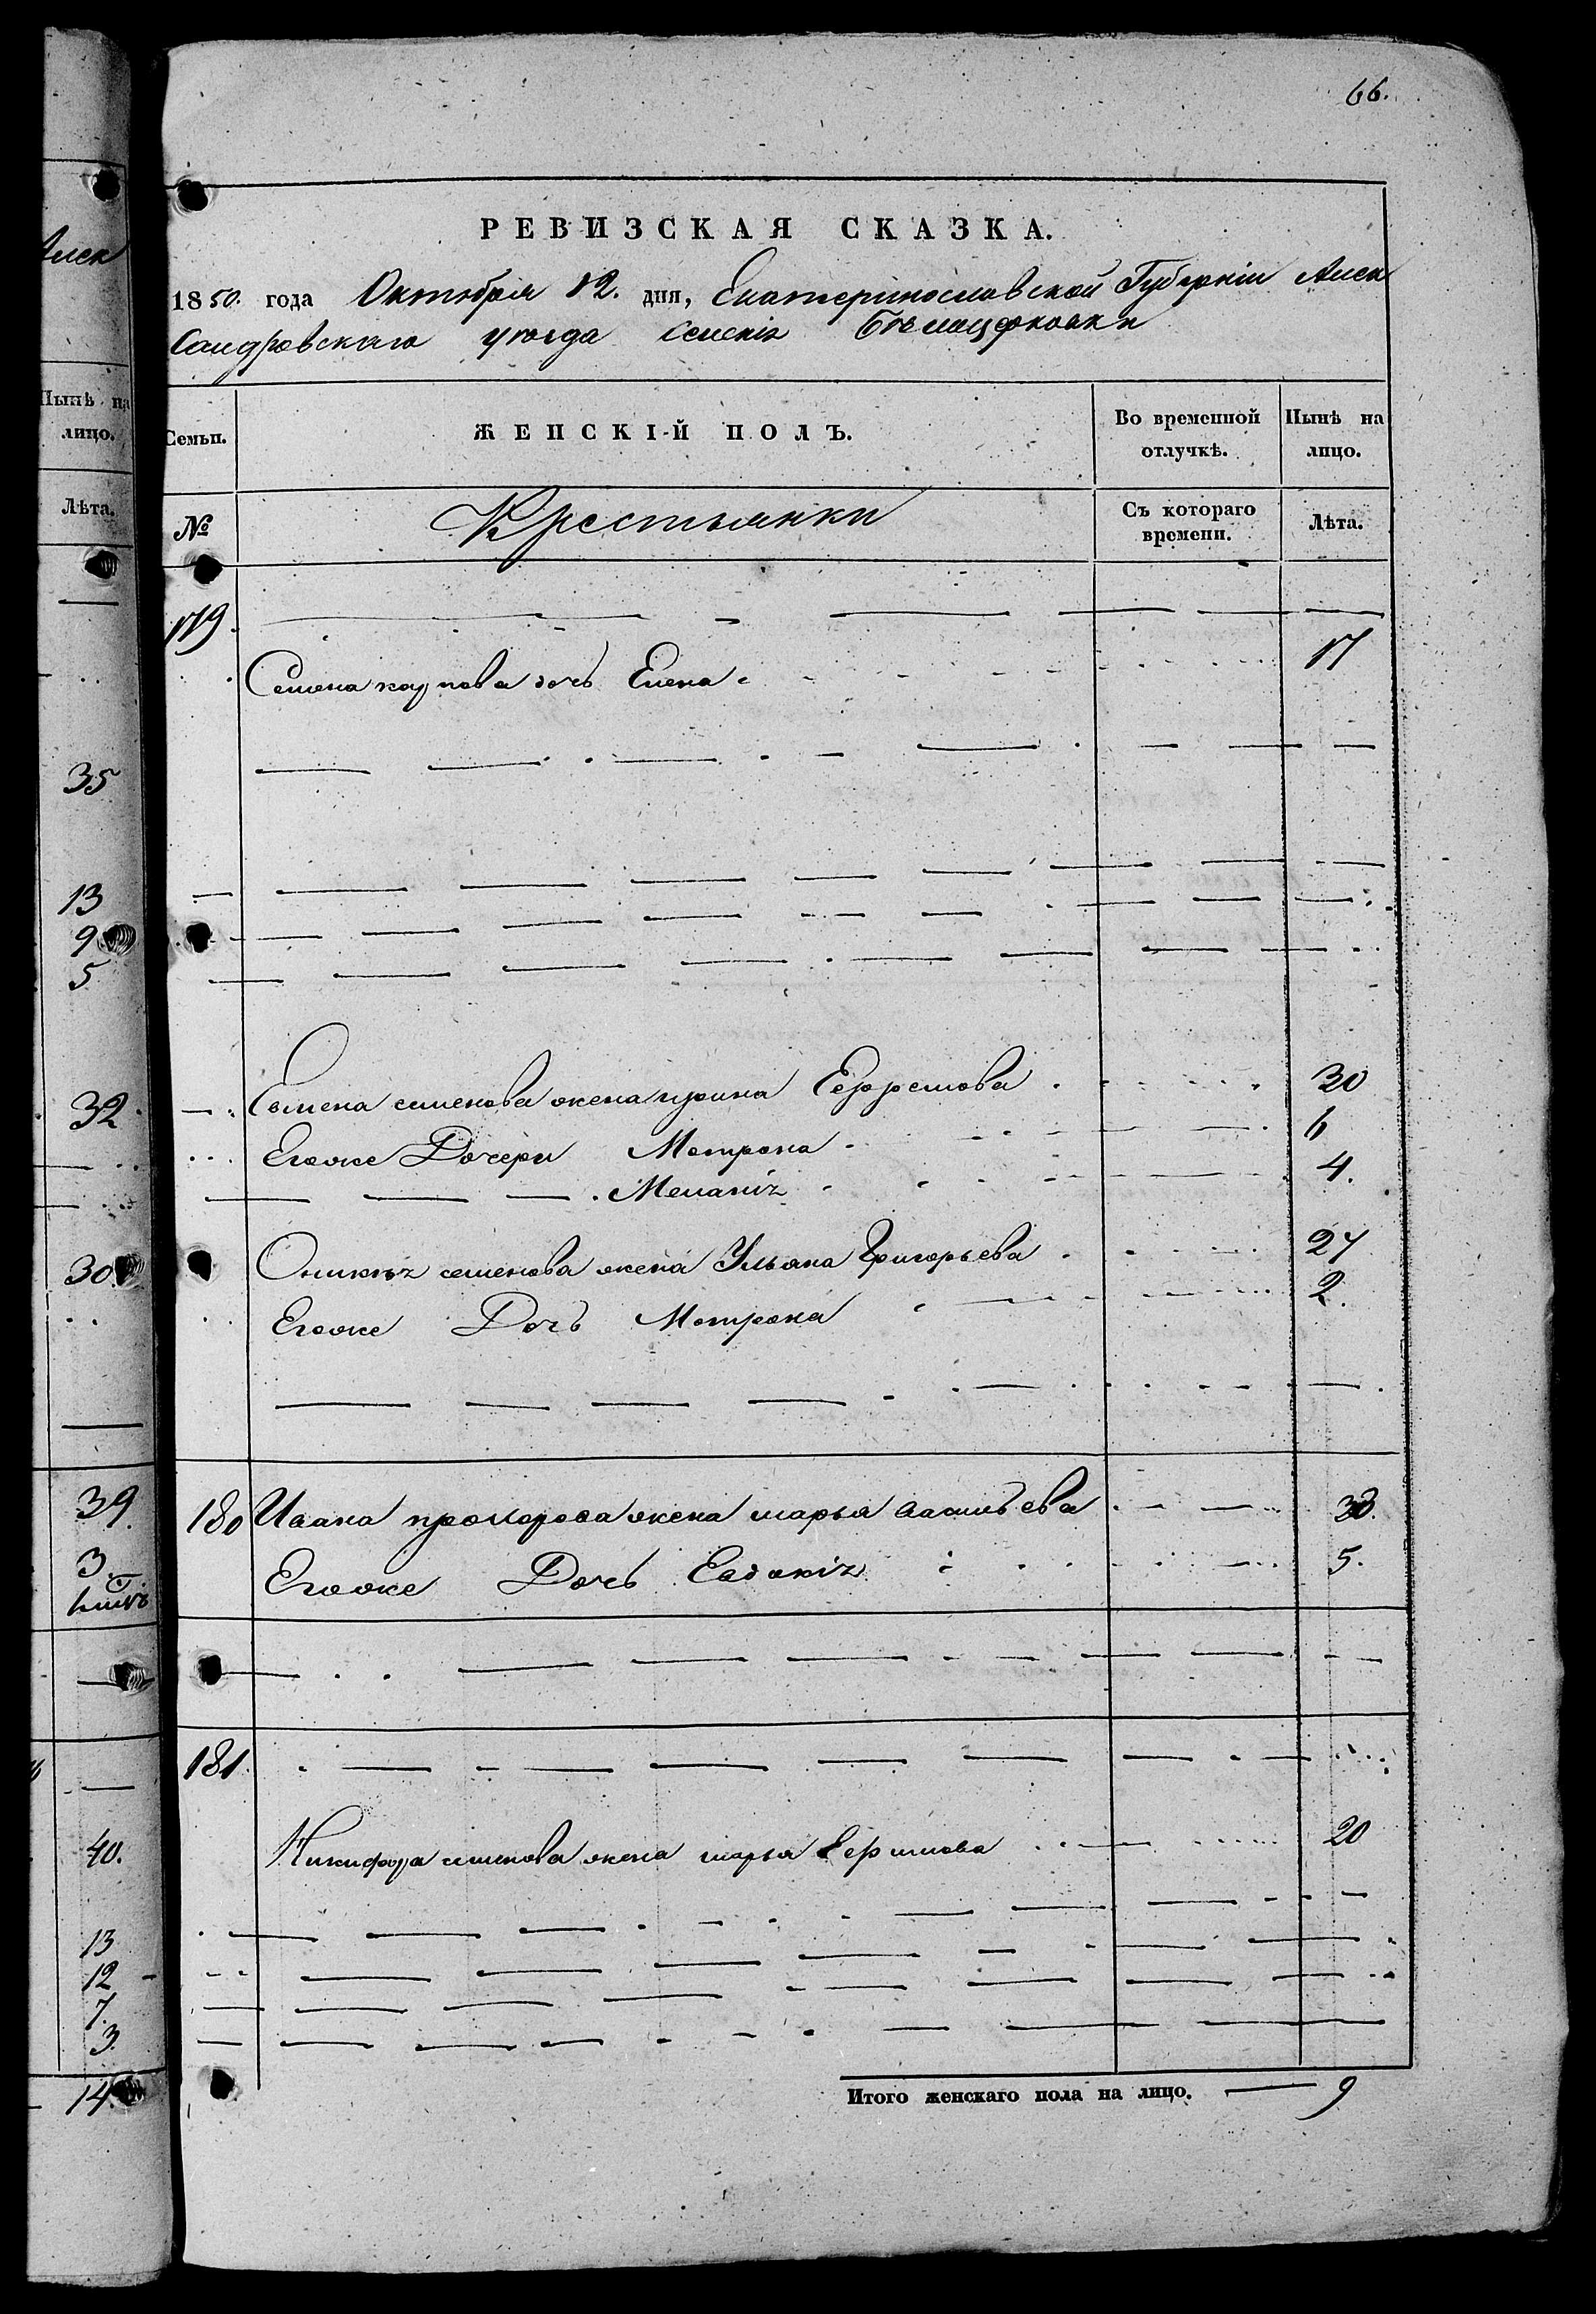 66.
Алек
РЕВИЗСКАЯ СКАЗКА.
1850. года Октября 12. дня, Екатеринославской Губерніи Алек
сандровскаго уѣзда селенія Бѣлоцерковки
Нынѣ на лицо.
Лѣта.
Семьи. ЖЕНСКІЙ ПОЛЪ. Во временной отлучкѣ. Нынѣ на лицо.
№ Крестьянки Съ котораго времени. Лѣта.
179.
Семена карпова дочь Елена 17
35
13
9
5
32
Семена семенова жена ирина Ефремова 30
Егоже Дочери Мотрона 6
Меланія 4.
30
Семенова жена Ульяна Григорьева 24
Егоже Дочь Мотрона 2.
39
3.
180 Ивана прохорова жена марья васильева 33.
Егоже Дочь Евдокія 5.
181.
40.
Никифора семенова жена марья Ефимова 20
13
12
7.
3.
14
Итого женскаго пола на лицо. — 9